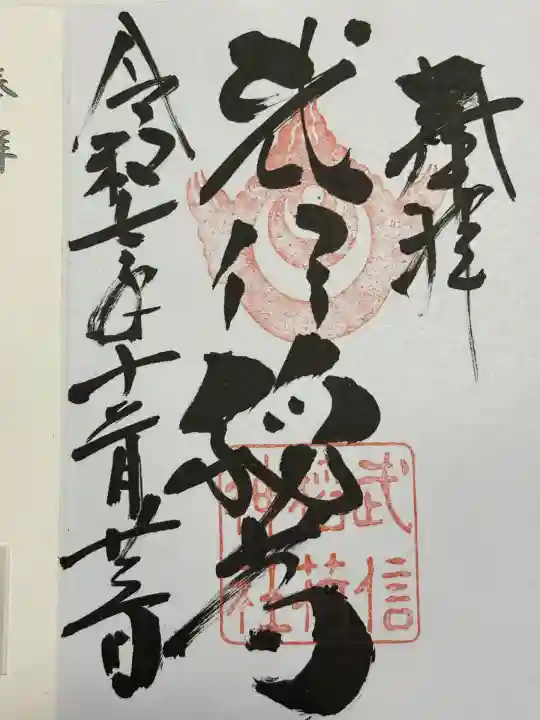 奉拝
武信稲荷
武信
稲荷
神社
令和七年十二月廿三日
奉拝